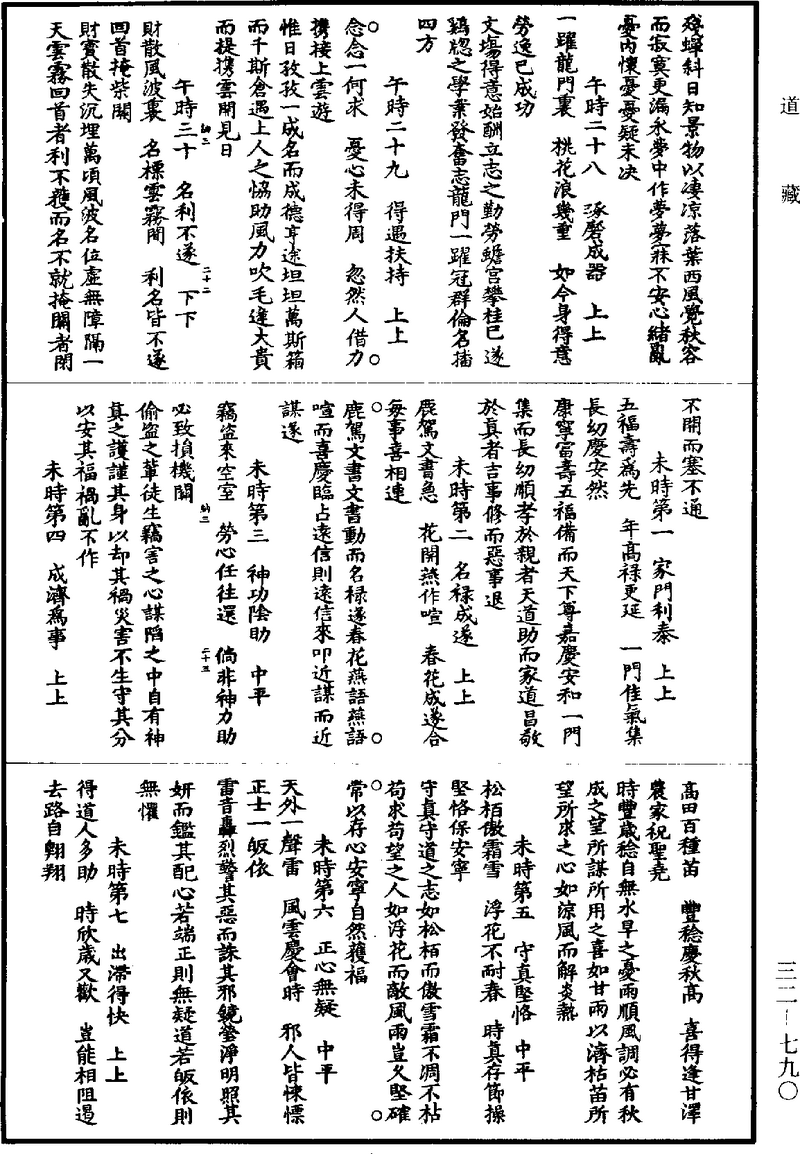 道藏
殘蟬斜日知景物以凄凉落葉西風覺秋容
而寂寞更漏永夢中作夢夢寐不安心緒亂
憂內懷憂憂疑未决
午時二十八　琢磨成器　上上
一躍龍門裏　桃花浪幾重　如今身得意
勞逸已成功
文場得意始酬立志之勤勞蟾宮攀桂已遂
鷄牕之學業發奮志龍門一躍冠群倫名播
四方
午時二十九　得遇扶持　上上
念念一何求　憂心未得周　忽然人借力
携接上雲遊
惟日孜孜一成名而成德亨途坦坦萬斯箱
而千斯倉遇上人之恊助風力吹毛達大貴
而提携雲開見日
午時三十　名利不遂　下下
財散風波裏　名標雲霧間　利名皆不遂
回首掩柴關
財寳散失沉埋萬頃風波名位虛無障隔一
天雲霧回首者利不獲而名不就掩關者閉
不開而塞不通
未時第一　家門利泰　上上
五福壽爲先　年高禄更延　一門佳氣集
長幼慶安然
康寧富壽五福備而天下尊嘉慶安和一門
集而長幼順孝於親者天道助而家道昌敬
於真者吉事修而惡事退
未時第二　名禄成遂　上上
鹿駕文書急　花開燕作喧　春花成遂合
每事喜相連
鹿駕文書文書動而名禄遂春花燕語燕語
喧而喜慶臨占逺信則逺信來叩近謀而近
謀遂
未時第三　神功陰助　中平
竊盜來空室　勞心任往還　倘非神力助
必致損機關
偷盜之軰徒生竊害之心謀陷之中自有神
真之護謹其身以却其禍災害不生守其分
以安其福禍亂不作
未時第四　成濟爲事　上上
高田百種苗　豐稔慶秋高　喜得逢甘澤
農家祝聖堯
時豐歲稔自無水旱之憂雨順風調必有秋
成之望所謀所用之喜如甘雨以濟枯苗所
望所求之心如涼風而解炎熱
未時第五　守真堅恪　中平
松栢傲霜雪　浮花不耐春　時真存節操
堅恪保安寧
守真守道之志如松栢而傲雪霜不凋不枯
苟求苟望之人如浮花而敵風雨豈久堅確
常以存心安寧自然獲福
未時第六　正心無疑　中平
天外一聲雷　風雲慶會時　邪人皆悚慓
正士一皈依
雷音轟烈警其惡而誅其邪鏡瑩淨明照其
妍而鑑其配心若端正則無疑道若皈依則
無懼
未時第七　出滯得快　上上
得道人多助　時欣歲又歡　豈能相阻遏
去路自翺翔
三二―七九〇